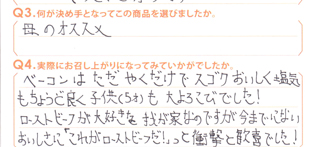 Q3.何が決め手となってこの商品を選びましたか。
母のオススメ
Q4.実際にお召し上がりになってみていかがでしたか。
ベーコンはただやくだけでスゴクおいしく塩気
もちょうど良く子供(5才)も大よろこびでした!
ローストビーフが大好きな我が家なのですが今までにない
おいしさに「これがローストビーフだ!」っと衝撃と歓喜でした!